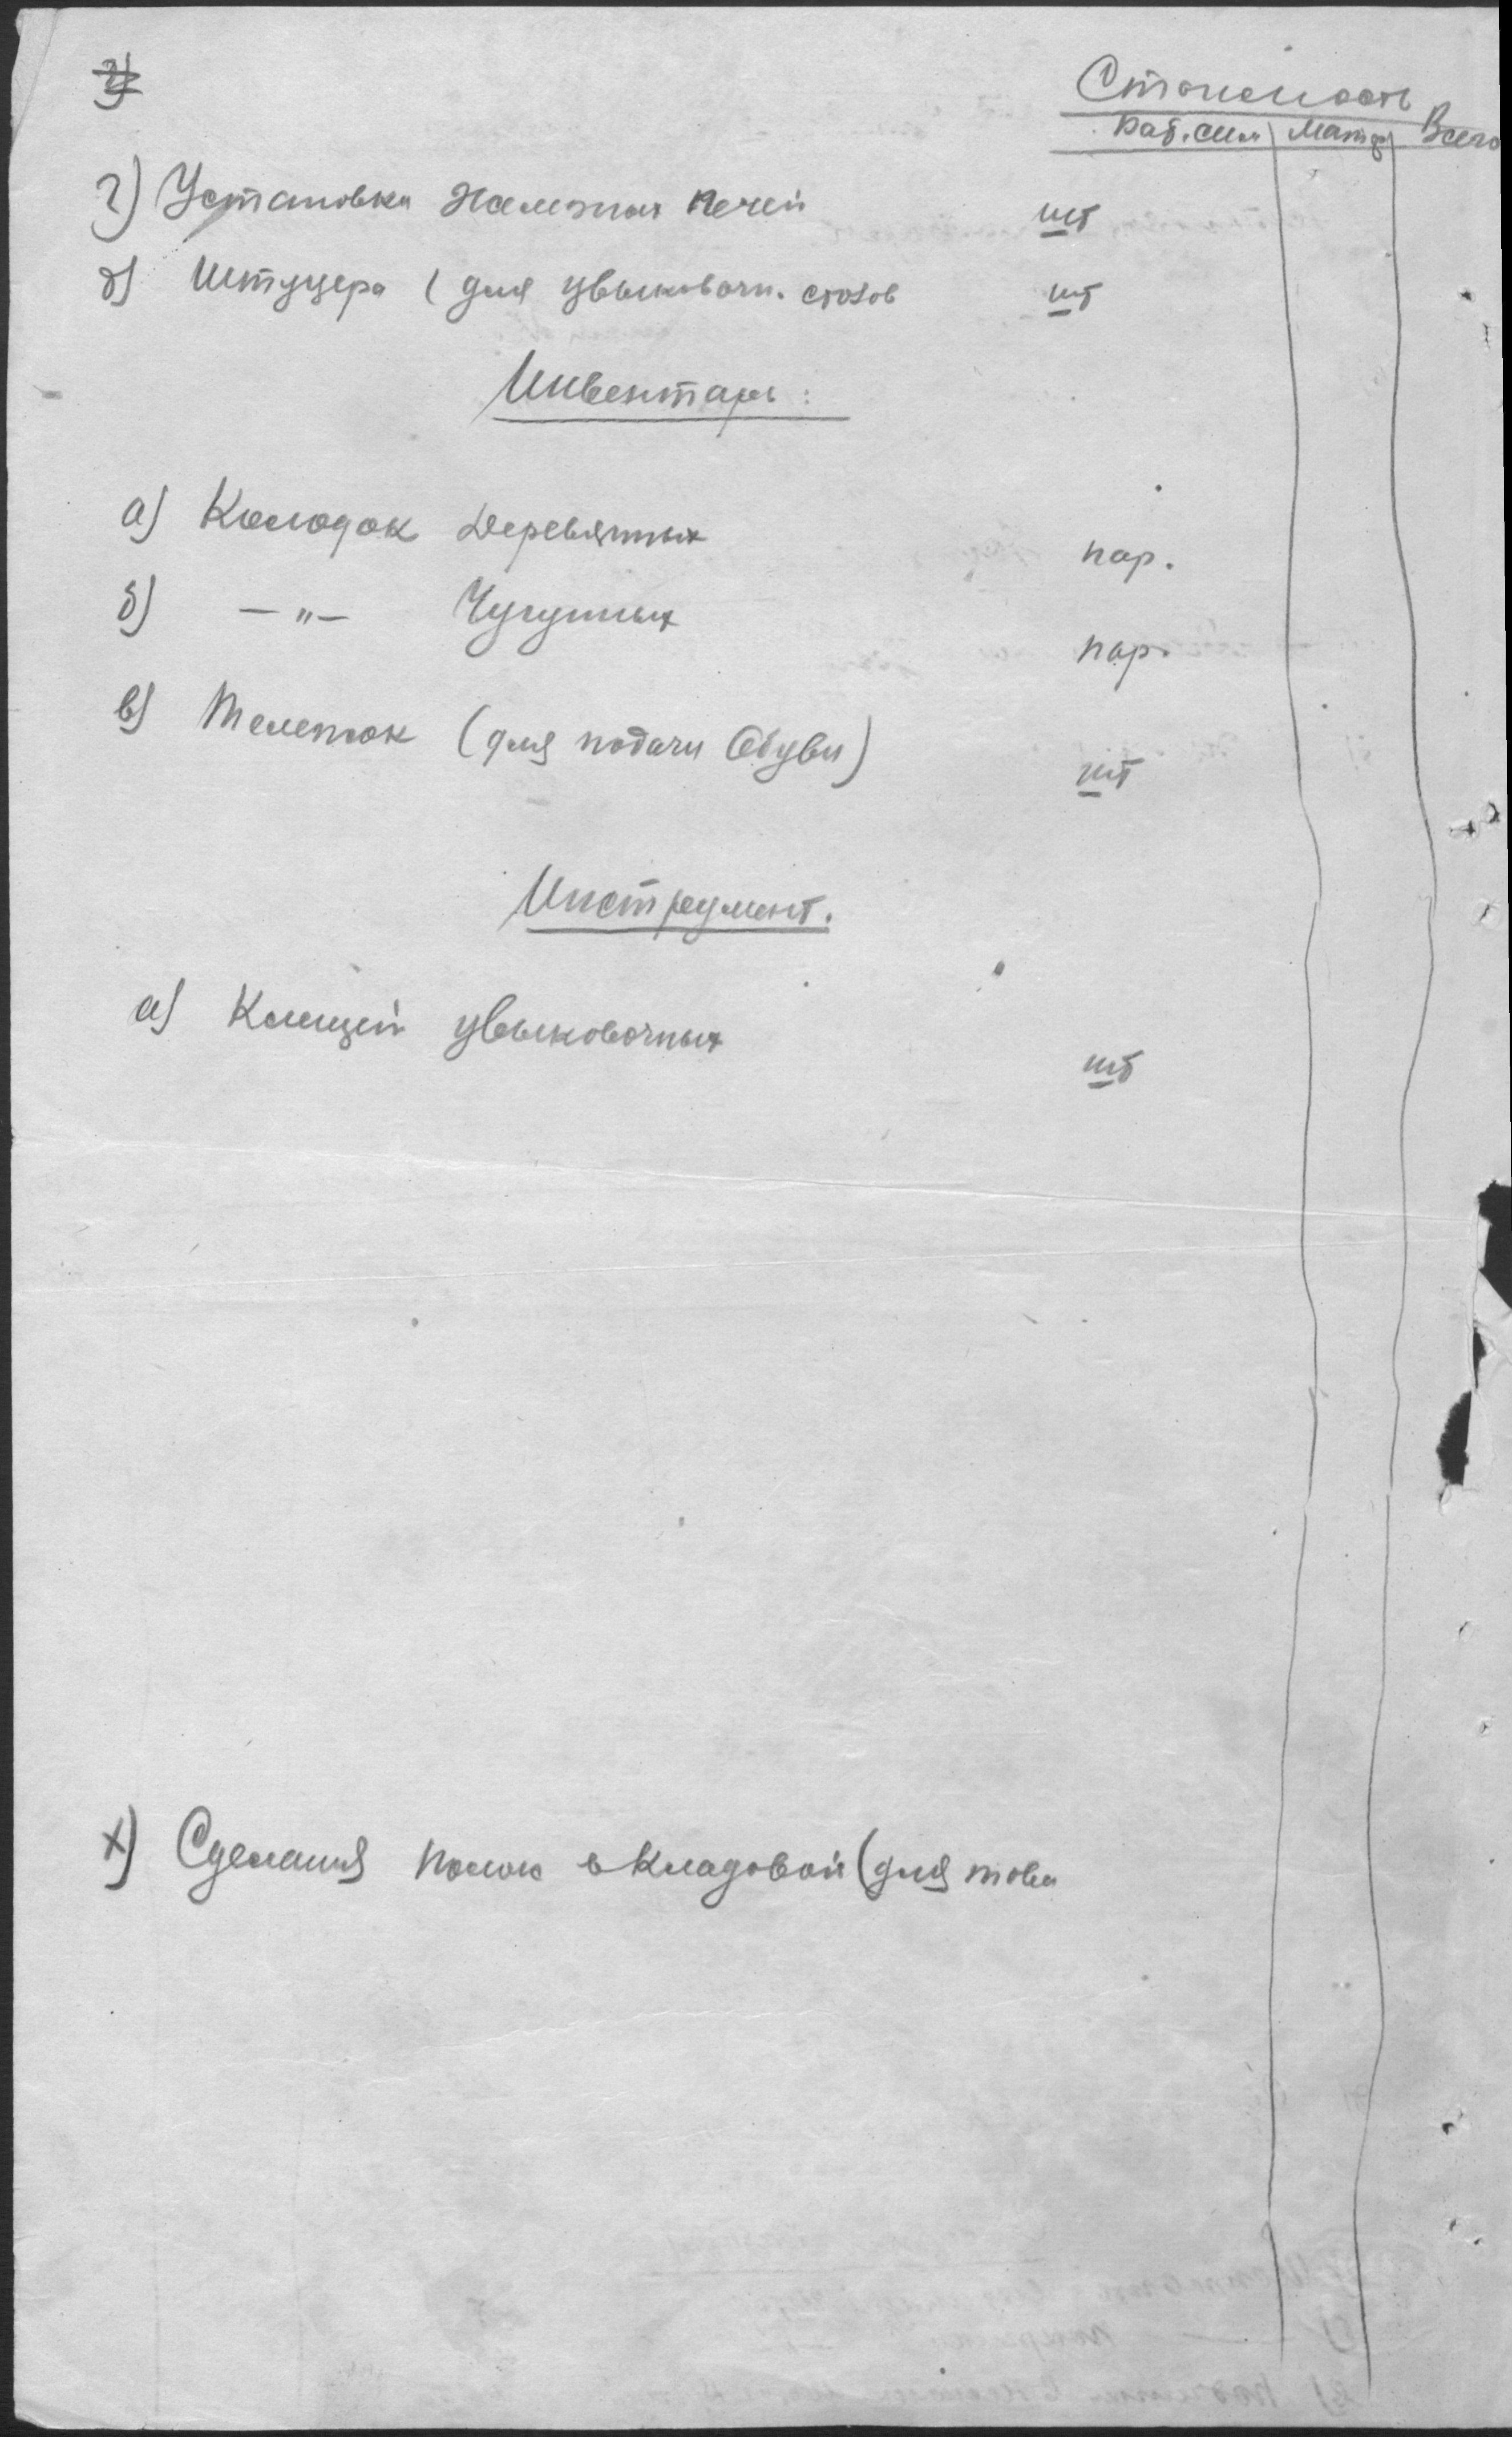 Стоимость
Раб. сил Матер Всего
г) Установки железных печей шт
д) Штуцера (для увыковочн. столов шт
Инвентарь:
а) Колодок Деревянных пар.
б) —"— Чугунных пар.
в) Тележок (для подачи Обуви) шт
Инструмент.
а) Клещей увыковочных шт
х) Сделания полок в Кладовой (для това